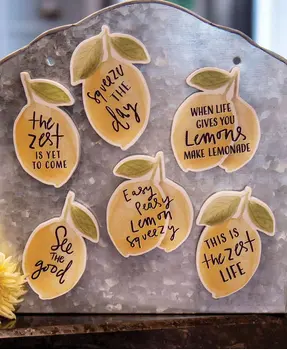 the
zest
IS YET
TO COME
Squeeze
THE
day
WHEN LIFE
GIVES YOU
Lemons
MAKE LEMONADE
See
THE
good
Easy
Peasy
Lemon
Squeezy
THIS IS
the zest
LIFE